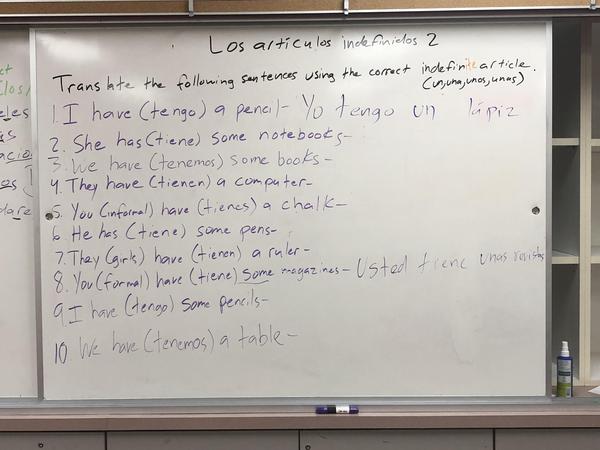 Los artículos indefinidos 2
Translate the following sentences using the correct indefinite article.
(un, una, unos, unas)
1. I have (tengo) a pencil- Yo tengo un lápiz
2. She has (tiene) some notebooks-
3. We have (tenemos) some books-
4. They have (tienen) a computer-
5. You (informal) have (tienes) a chalk-
6. He has (tiene) some pens-
7. They (girls) have (tienen) a ruler-
8. You (formal) have (tiene) some magazines- Usted tiene unas revistas
9. I have (tengo) some pencils-
10. We have (tenemos) a table-